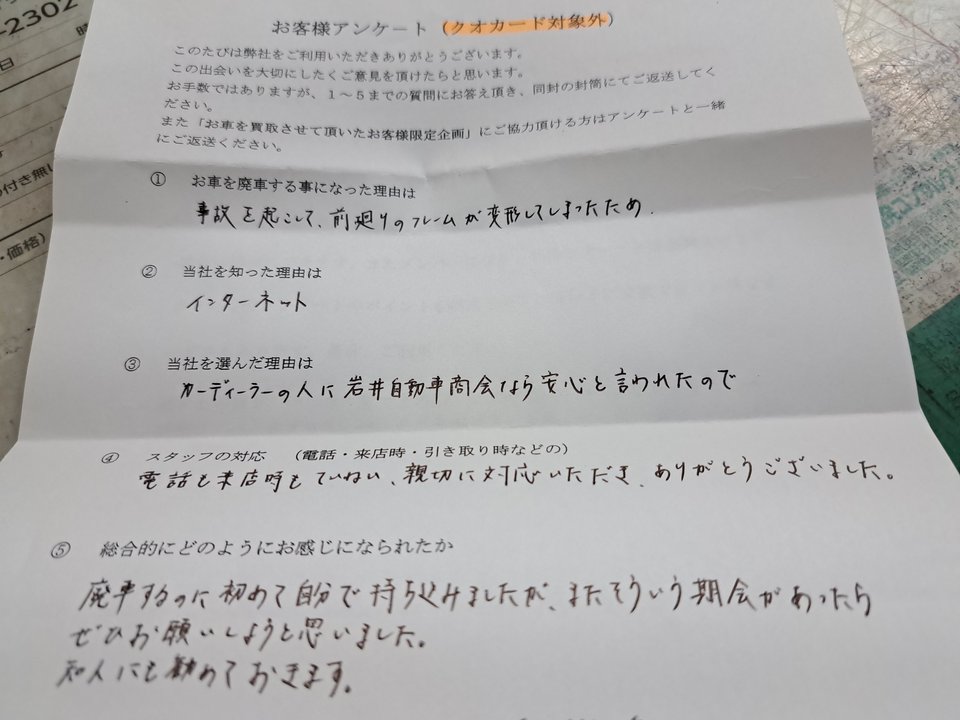 -2302
日
お客様アンケート（クオカード対象外）
このたびは弊社をご利用いただきありがとうございます。
この出会いを大切にしたくご意見を頂けたらと思います。
お手数ではありますが、１～５までの質問にお答え頂き、同封の封筒にてご返送してく
ださい。
また「お車を買取させて頂いたお客様限定企画」にご協力頂ける方はアンケートと一緒
にご返送ください。
① お車を廃車する事になった理由は
事故を起こして、前廻りのフレームが変形してしまったため.
② 当社を知った理由は
インターネット
③ 当社を選んだ理由は
カーディーラーの人に岩井自動車商会なら安心と言われたので
④ スタッフの対応 （電話・来店時・引き取り時などの）
電話も来店時もていねい、親切に対応いただき、ありがとうございました。
⑤ 総合的にどのようにお感じになられたか
廃車するのに初めて自分で持ち込みましたが、またそういう期会があったら
ぜひお願いしようと思いました。
知人にも勧めておきます。
の付き無し
・価格)